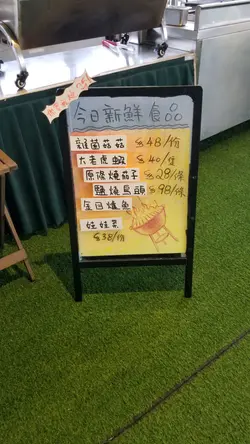 今日新鮮食品
雜菌菇菇 $48/份
大老虎蝦 $40/隻
原條燒茄子 $28/條
鹽燒烏頭 $98/條
金目爐魚
娃娃菜
$38/份